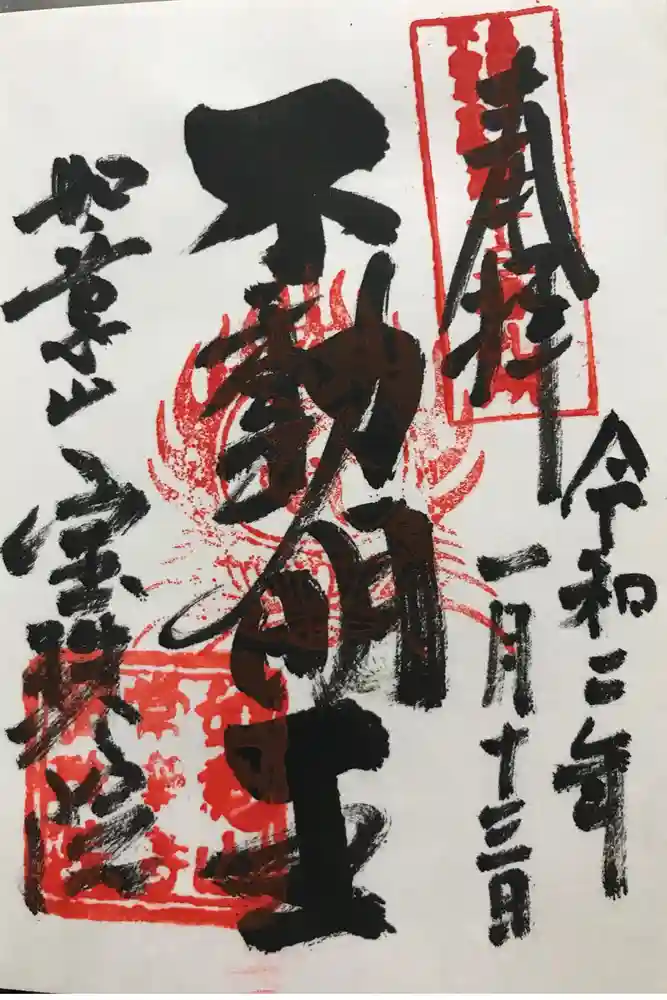 奉拝
令和二年
一月十三日
不動明王
如意山
宝珠院